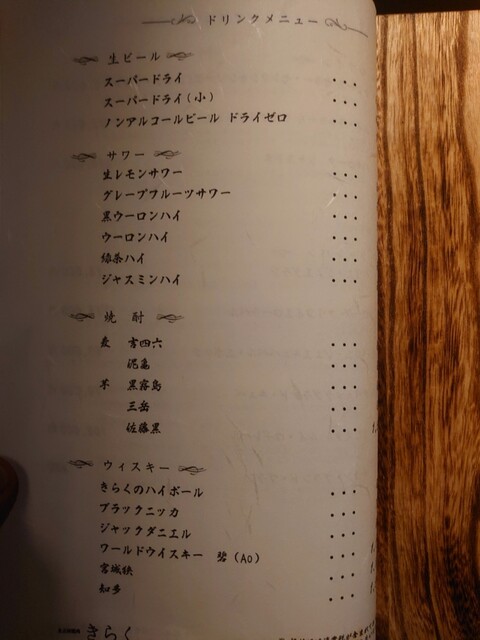 ドリンクメニュー
生ビール
スーパードライ ・・・
スーパードライ(小) ・・・
ノンアルコールビール ドライゼロ ・・・
サワー
生レモンサワー ・・・
グレープフルーツサワー ・・・
黒ウーロンハイ ・・・
ウーロンハイ ・・・
緑茶ハイ ・・・
ジャスミンハイ ・・・
焼酎
麦 吉四六 ・・・
泥亀 ・・・
芋 黒霧島 ・・・
三岳 ・・・
佐藤黒 ・・・
ウィスキー
きらくのハイボール ・・・
ブラックニッカ ・・・
ジャックダニエル ・・・
ワールドウイスキー 碧(AO) ・・・
宮城峡 ・・・
知多 ・・・
きらく